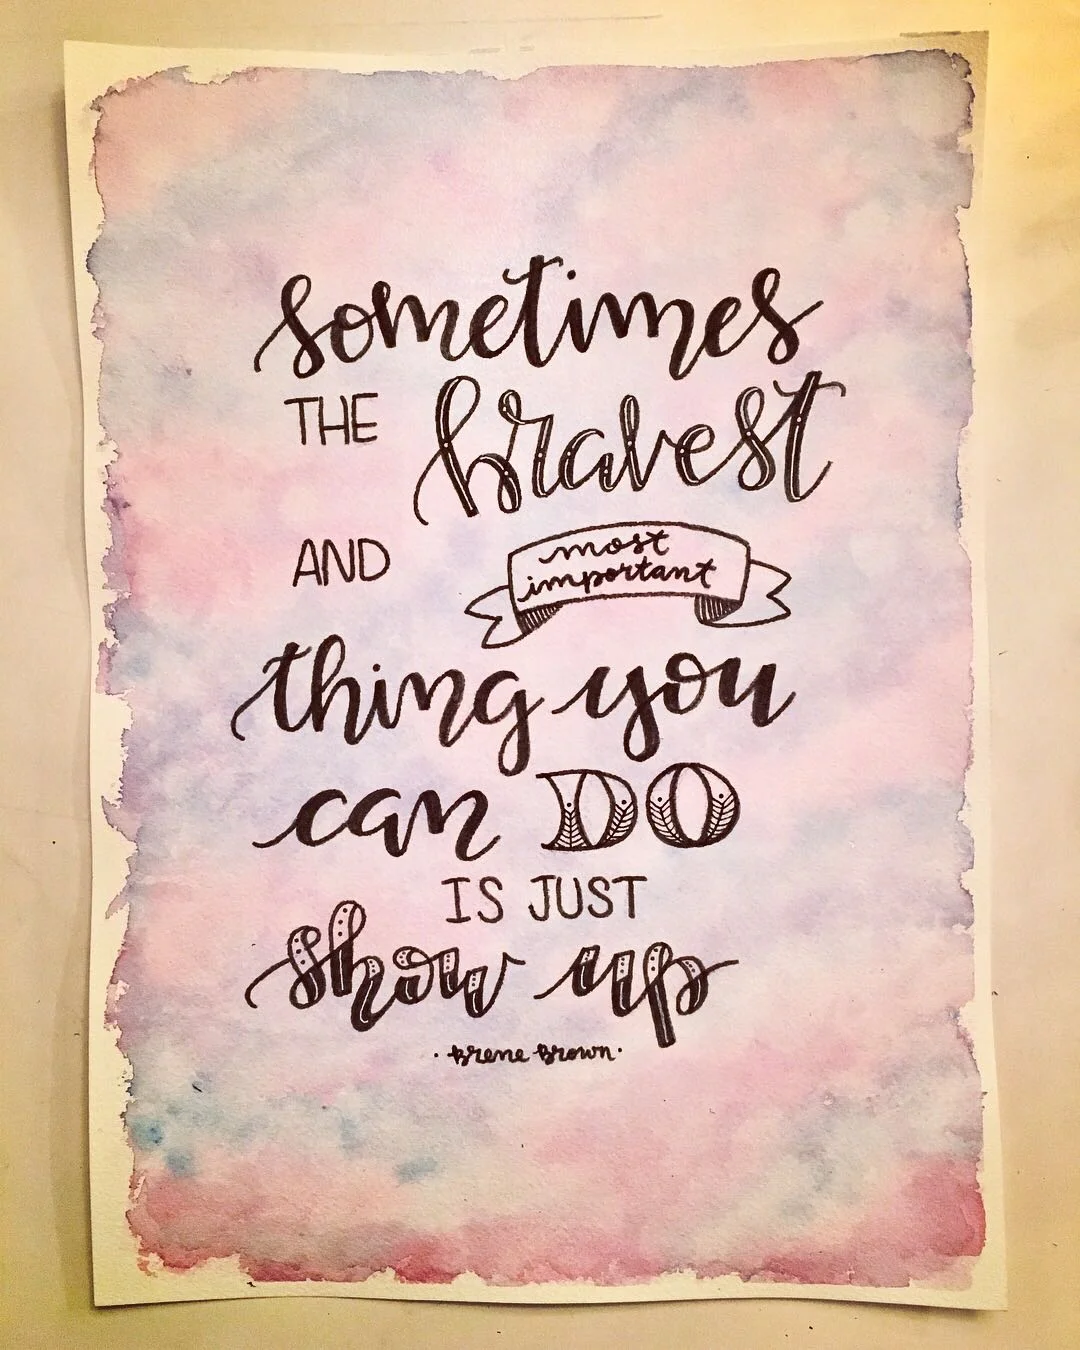 sometimes
THE bravest
AND most
important
thing you
can DO
IS JUST
show up
· Brene Brown ·